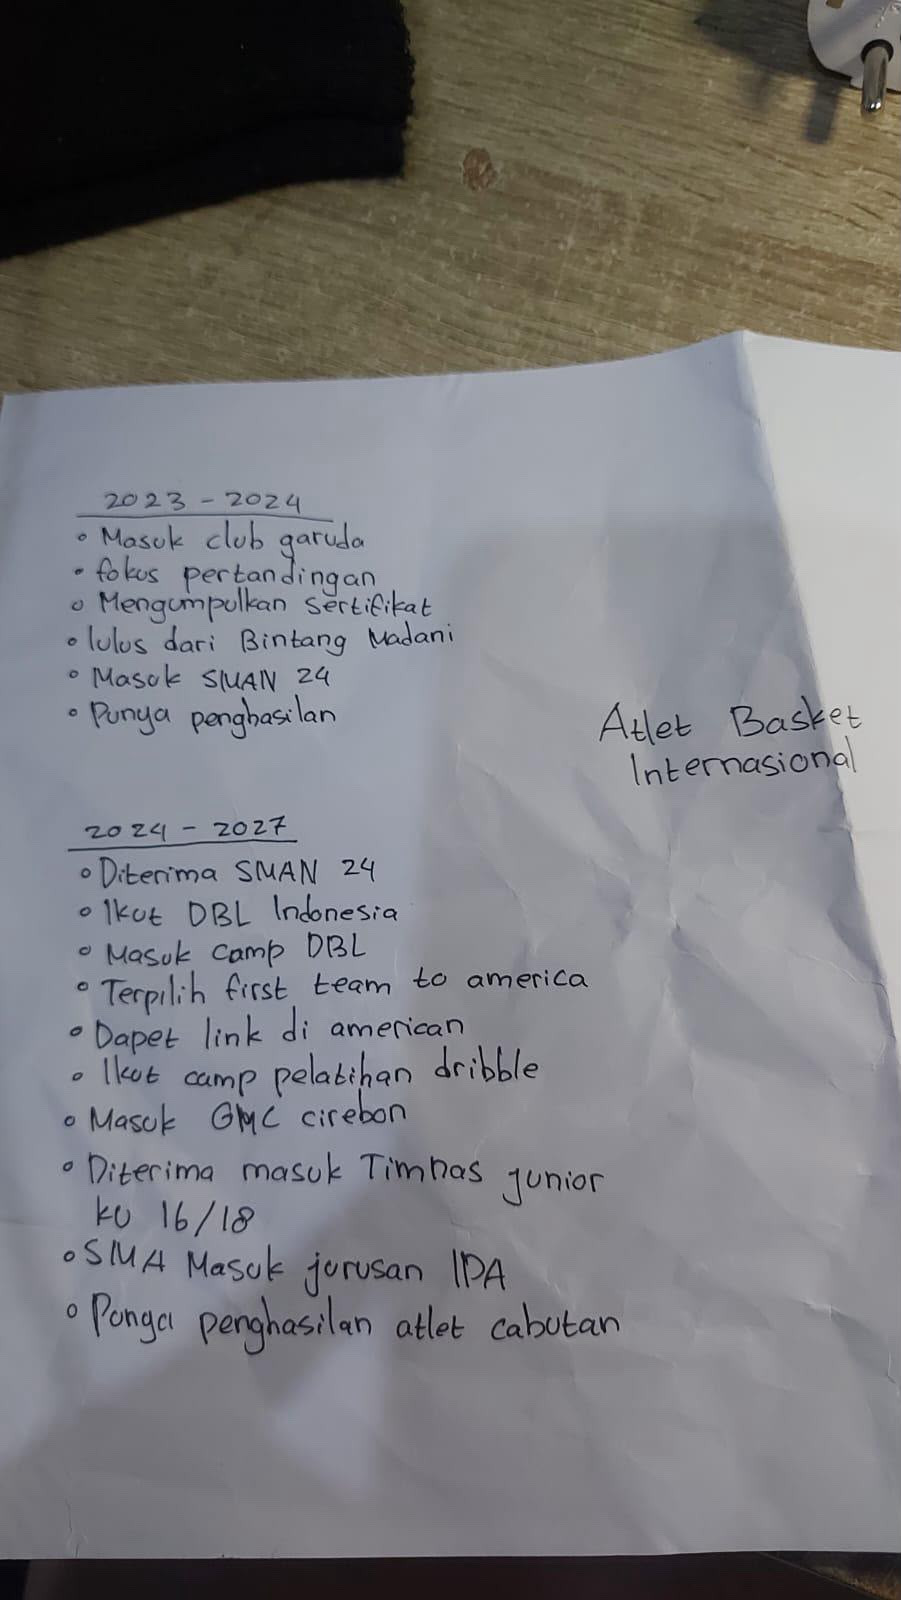 2023 - 2024
• Masuk club garuda
• fokus pertandingan
• Mengumpulkan sertifikat
• lulus dari Bintang Madani
• Masuk SMAN 24
• Punya penghasilan
Atlet Basket
Internasional
2024 - 2027
• Diterima SMAN 24
• Ikut DBL Indonesia
• Masuk camp DBL
• Terpilih first team to america
• Dapet link di american
• Ikut camp pelatihan dribble
• Masuk GMC cirebon
• Diterima masuk Timnas junior
KU 16/18
• SMA Masuk jurusan IPA
• Punya penghasilan atlet cabutan